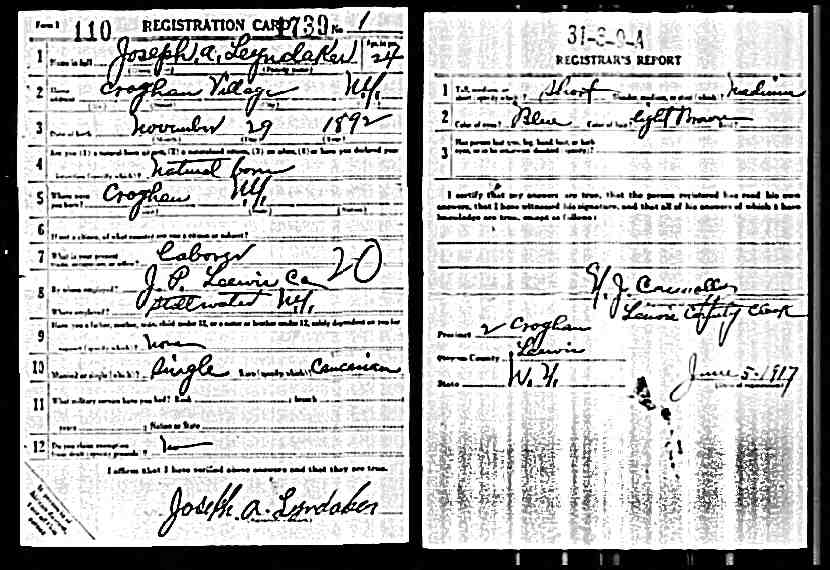 Form 1 110 REGISTRATION CARD 1739 No. 1
1 Name in full Joseph A. Leyndaker Age, in yrs. 24
2 Home address Croghan Village N.Y.
3 Date of birth November 29 1892
4 Are you (1) a natural born citizen, (2) a naturalized citizen, (3) an alien, (4) or have you declared your
intention (specify which)? Natural born
5 Where were you born? Croghan N.Y.
6 If not a citizen, of what country are you a citizen or subject?
7 What is your present trade, occupation, or office? Laborer 20
8 By whom employed? J. P. Lewis Co
Where employed? Stillwater N.Y.
9 Have you a father, mother, wife, child under 12, or a sister or brother under 12, solely dependent on you for
support (specify which)? None
10 Married or single (which)? Single Race (specify which)? Caucasian
11 What military service have you had? Rank branch
years Nation or State
12 Do you claim exemption from draft (specify grounds)?
I affirm that I have verified above answers and that they are true.
Joseph A. Lyndaker
31-3-9-A
REGISTRAR'S REPORT
1 Tall, medium, or short (specify which)? Short Slender, medium, or stout (which)? Medium
2 Color of eyes? Blue Color of hair? Light Brown Bald?
3 Has person lost arm, leg, hand, foot, or both
eyes, or is he otherwise disabled (specify)?
I certify that my answers are true, that the person registered has read his own
answers, that I have witnessed his signature, and that all of his answers of which I have
knowledge are true, except as follows:
Lewis County Clerk
Precinct 2 Croghan
City or County Lewis
State N.Y. June 5-1917
(Date of registration)